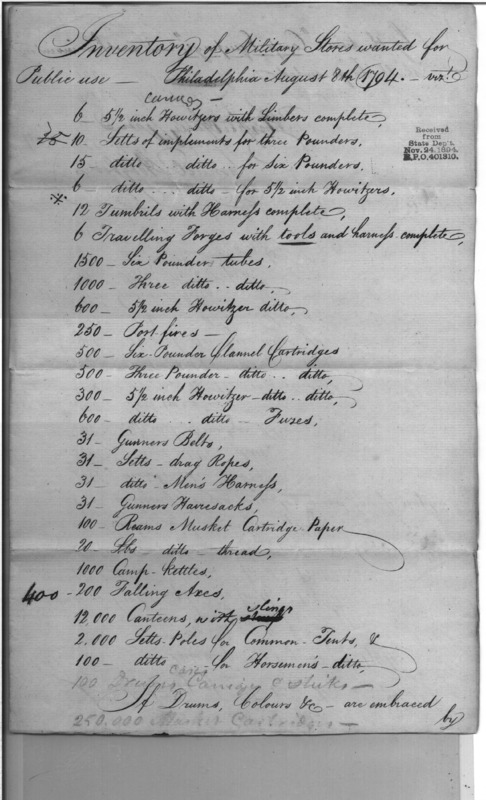 Inventory of Military Stores wanted for
Public use — Philadelphia August 8th 1794. — vizt.
6 5½ inch Howitzers with Limbers complete,
25 10 Setts of implements for three Pounders,
Received
from
State Dep't.
Nov. 24, 1894.
R.P.O. 401310.
15 ditto ditto.. for Six Pounders.
6 ditto... ditto — for 5½ inch Howitzers.
* 12 Tumbrils with Harness complete,
6 Travelling Forges with tools and harness complete,
1500 — Six Pounder tubes.
1000 — Three ditto.. ditto,
600 — 5½ inch Howitzer ditto,
250 — Port fires —
500 — Six-Pounder Flannel Cartridges
500 — Three Pounder — ditto.. ditto,
300 — 5½ inch Howitzer — ditto.. ditto,
600 — ditto... ditto — Fuzes,
31 — Gunners Belts,
31 — Setts — drag Ropes,
31 — ditto Men's Harness,
31 — Gunners Haversacks,
100 — Reams Musket Cartridge Paper
20 — lbs — ditto — thread,
1000 Camp-Kettles,
400 — 200 Falling Axes,
12,000 Canteens, with slings
2.000 Setts-Poles for Common-Tents, &
100 — ditto — for Horsemen's — ditto,
100 Drums Carriages & sticks —
If Drums, Colours &c — are embraced
250,000 Musket Cartridges —
by